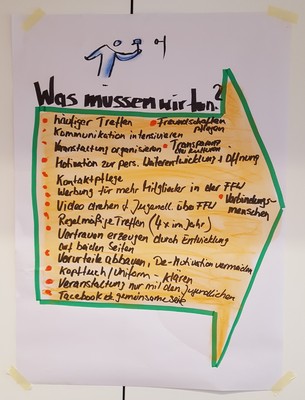 Was müssen wir tun?
häufiger Treffen
Freundschaften
pflegen
Kommunikation intensivieren
Veranstaltung organisieren
Transparenz
der Kulturen
Motivation zur pers. Weiterentwicklung + Öffnung
Kontaktpflege
Werbung für mehr Mitglieder in der FFW
Verbindungs-
menschen
Video drehen d. Jugendl. über FFW
Regelmäßige Treffen (4x im Jahr)
Vertrauen erzeugen durch Entwicklung
auf beiden Seiten
Vorurteile abbauen, De-Motivation vermeiden
Kopftuch/Uniform - klären
Veranstaltung nur mit den Jugendlichen
Facebook gemeinsame Seite